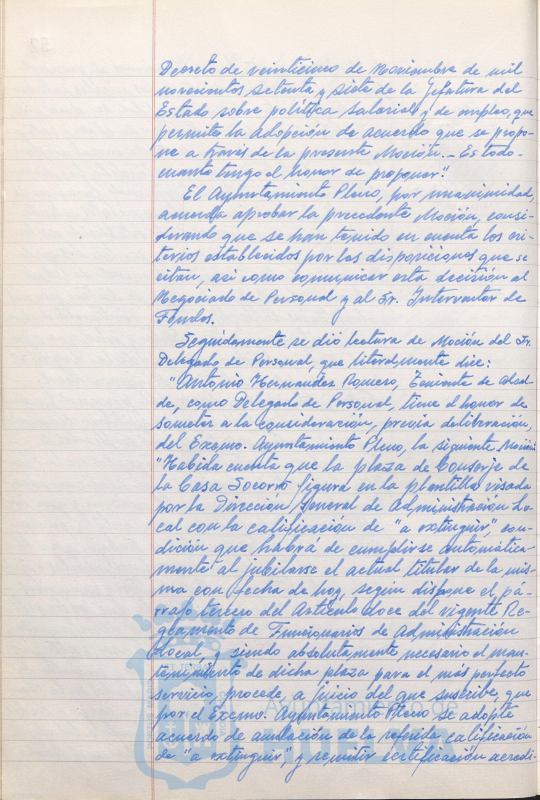 Decreto de veinticinco de Noviembre de mil
novecientos setenta y siete de la Jefatura del
Estado sobre política salarial y de empleo, que
permite la adopción de acuerdo que se propo-
ne a través de la presente Moción.- Es todo
cuanto tengo el honor de proponer."
El Ayuntamiento Pleno, por unanimidad,
acuerda aprobar la precedente Moción, consi-
derando que se han tenido en cuenta los cri-
terios establecidos por las disposiciones que se
citan, así como comunicar esta decisión al
Negociado de Personal y al Sr. Interventor de
Fondos.
Seguidamente se dió lectura de Moción del Sr.
Delegado de Personal, que literalmente dice:
"Antonio Hernandez Romero, Teniente de Alcal-
de, como Delegado de Personal, tiene el honor de
someter a la consideración, previa deliberación,
del Excmo. Ayuntamiento Pleno, la siguiente Moción:
"Habida cuenta que la plaza de Conserje de
la Casa Socorro figura en la plantilla visada
por la Dirección General de Administración Lo-
cal con la calificación de "a extinguir", con-
dición que habrá de cumplirse automática-
mente al jubilarse el actual titular de la mis-
ma con fecha de hoy, según dispone el pá-
rrafo tercero del Artículo doce del vigente Re-
glamento de Funcionarios de Administración
Local, siendo absolutamente necesario el man-
tenimiento de dicha plaza para el más perfecto
servicio, procede, a juicio del que suscribe, que
por el Excmo. Ayuntamiento Pleno se adopte
acuerdo de anulación de la referida calificación
de "a extinguir", y remitir certificación acredi-
Ayuntamiento de
HUELVA